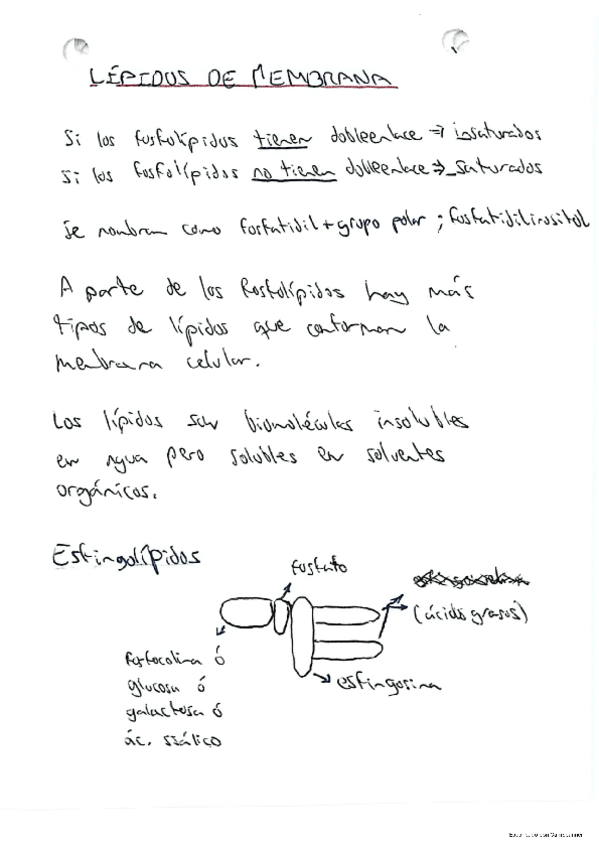 LÍPIDOS DE MEMBRANA
Si los fosfolípidos tienen dobleenlace => insaturados
Si los fosfolípidos no tienen dobleenlace => saturados
Se nombran como fosfatidil + grupo polar ; fosfatidilinositol
A parte de los fosfolípidos hay más
tipos de lípidos que conforman la
membrana celular.
Los lípidos son biomoléculas insolubles
en agua pero solubles en solventes
orgánicos.
Esfingolípidos
fosfato
(ácidos grasos)
esfingosina
fosfocolina ó
glucosa ó
galactosa ó
ác. siálico